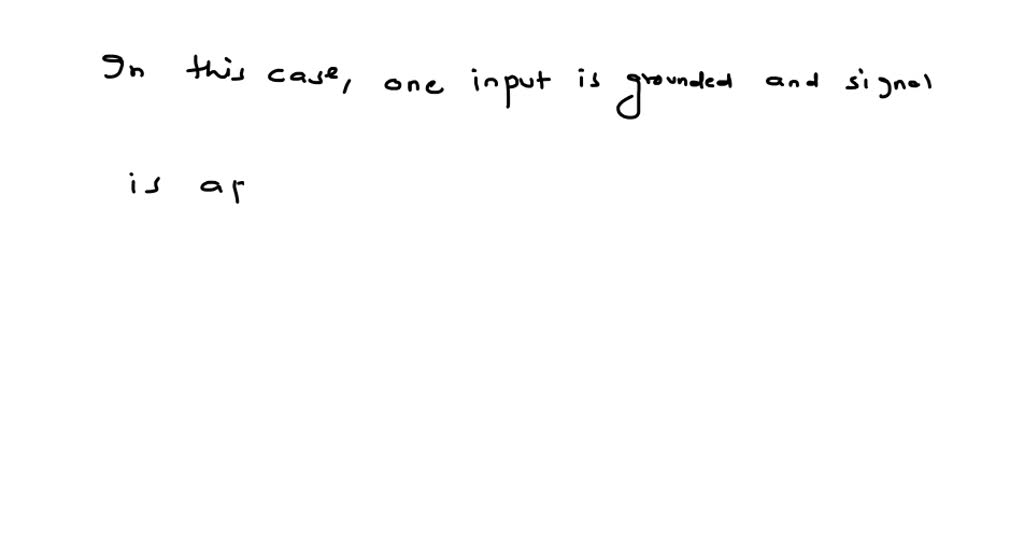 In this case, one input is grounded and signal
is ap